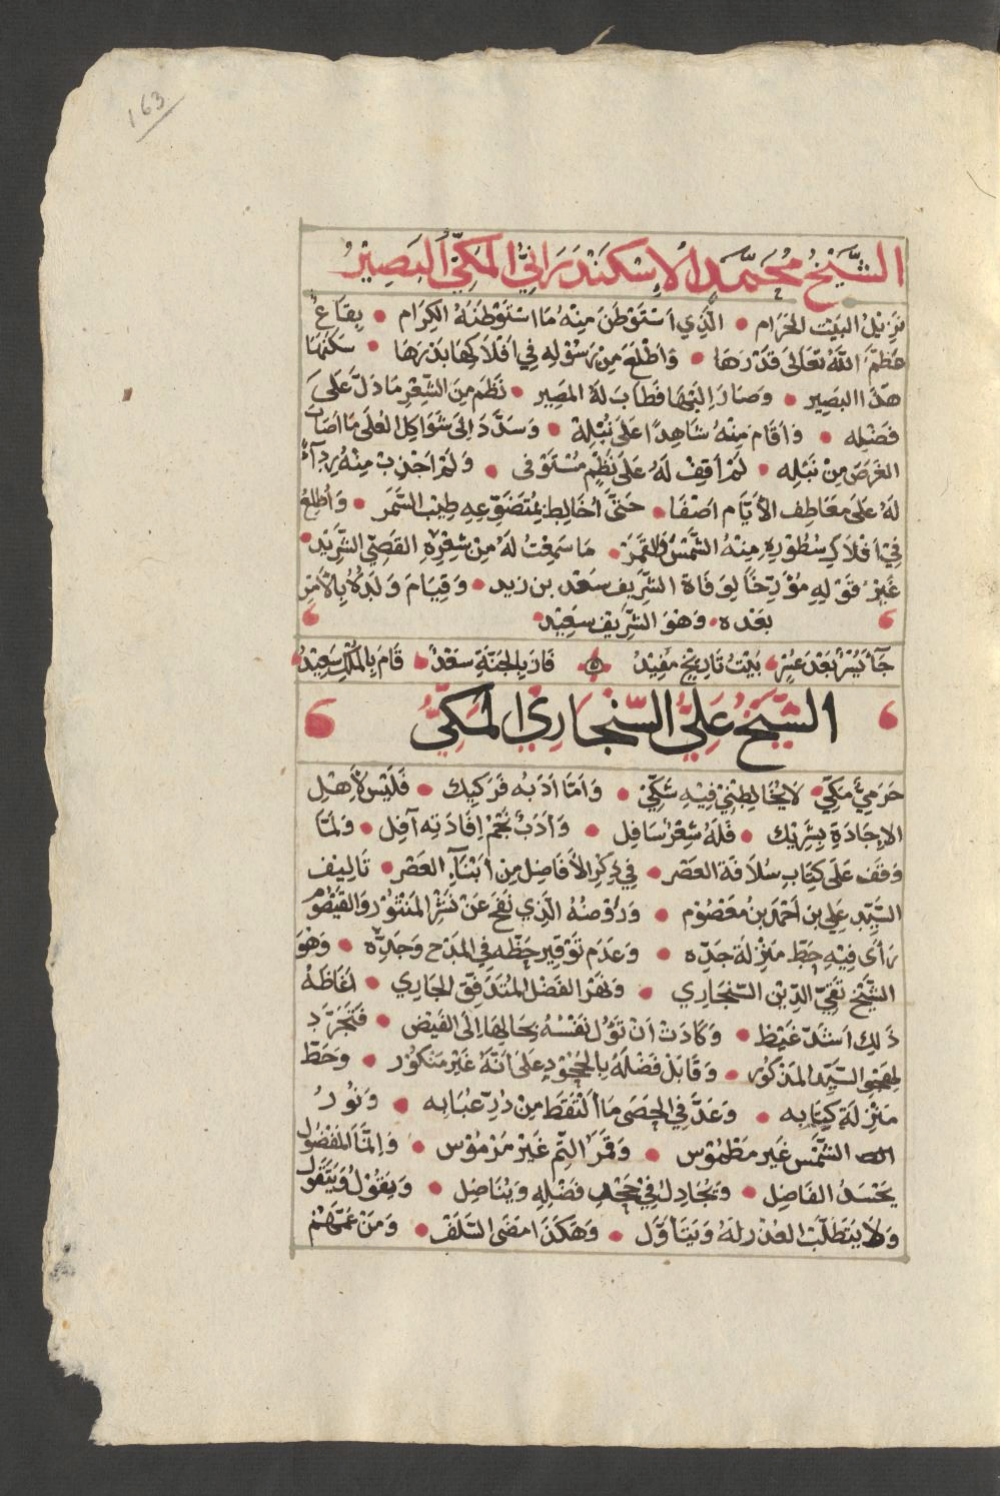 163
الشَّيْخُ مُحَمَّد الْإِسْكَنْدَرَانِيُّ المَكِّيُّ البَصِيْرُ
نَزِيْلُ البَيْتِ الحَرَام • الَّذِي اسْتَوْطَنَ مِنْهُ مَا اسْتَوْطَنَهُ الكِرَام • بِقَاعٌ
عَظَّمَ اللَّهُ تَعَالَى قَدْرَهَا • وَأَطْلَعَ مِن رَسُوْلِهِ فِي أَفْلَاكِهَا بَدْرَهَا • سَكَنَهَا
هَذَا البَصِير • وَصَارَ إِلَيْهَا فَطَابَ لَهُ المَصِير • نَظَمَ مِنَ الشِّعْرِ مَا دَلَّ عَلَى
فَضْلِه • وَأَقَامَ مِنْهُ شَاهِدًا عَلَى نُبْلِهْ • وَسَدَّدَ إِلَى شَوَاكِلِ العُلَى مَا أَصَابَ
الغَرَضَ مِنْ نَبْلِه • لَمْ أَقِفْ لَهُ عَلَى نَظْمٍ مُسْتَوْفَى • وَلَمْ أَجْذِبْ مِنْهُ رِدَآءً
لَهُ عَلَى مَعَاطِفِ الأَيَّامِ أَضْفَا • حَتَّى أُخَالِطَ بِمُتَضَوِّعِهِ طِيْبَ السَّمَر • وَأُطْلِعُ
فِي أَفْلَاكِ سُطُوْرِهِ مِنْهُ الشَّمْسَ وَالقَمَرْ • مَا سَمِعْتُ لَهُ مِنْ شِعْرِهِ القَصِّي الشَّرِيْد •
غَيْرُ قَوْلِهِ مُؤَرِّخًا لِوَفَاةِ الشَّرِيف سَعْد بن زيد • وَقِيَامَ وَلَدِهُ بِالأَمْرِ
بَعْدَه • وَهْوَ الشَّرِيْف سَعِيْد
جَآءَ يُسْرٌ بَعْدَ عُسْرٍ • بَيْتُ تَارِيْخٍ مُفِيْدُ فَازَ بِالجَنَّةِ سَعْدٌ • قَامَ بِالمُلْكِ سَعِيْدُ
الشَّيْخُ عَلِيُّ السِّنْجَارِيُّ المَكِّيُّ
حَرَمِيٌّ مَكِّيّ • لَا يُخَالِطُنِيْ فِيْهِ شَكِّيْ • وَأَمَّا أَدَبُه فَرَكِيك • فَلَيْسَ لِأَهْلِ
الإِجَادَةِ بِشَرِيْك • فَلَهُ شِعْرٌ سَافِل • وَأَدَبٌ نَجْمُ إِفَادَتِه آفِل • وَلَمَّا
وَقَفَ عَلَى كِتَابِ سُلَافَةِ العَصْر • فِي ذِكْرِ الأَفَاضِلِ مِن أَبْنَآءِ العَصْر • تَالِيف
السَّيِّد عَلِي بن أَحْمَد بنُ مَعْصُوْم • وَرَوْضَهُ الَّذِي نَفَحَ عَنْ نَشْرِ المَنْثُوْرِ وَالقَيْصُوْم
رَأَى فِيْهِ حَطَّ مَنْزِلَة جَدِّه • وَعَدَم تَوْقِير حَظِّه فِي المَدْح وَجَدِّه • وَهْوَ
الشَّيْخ تَقِيّ الدِّيْن السِّنْجَارِي • وَنَهْر الفَضْل المُتَدَفِّق الجَارِي • أَغَاظَهُ
ذَلِكَ أَشَدَّ غَيْظ • وَكَادَتْ أَنْ تَؤُل نَفْسُهُ بِحَالِهَا إِلَى الفَيْض • فَتَجَرَّدَ
لِهَجْوِ السَّيِّد المَذْكُوْر • وَقَابَلَ فَضْلَهُ بِالجُحُوْدِ عَلَى أَنَّهُ غَيْرُ مَنْكُوْر • وَحَطَّ
مَنْزِلَةَ كِتَابِه • وَعَدَّ فِي الحَصَى مَا التَقَطَ مِنْ دُرِّ عُبَابِه • وَنُوْرُ
الشَّمْسِ غَيْر مَطْمُوْس • وَقَمَرُ التِّمِّ غَيْرُ مَرْمُوْس • وَإِنَّمَا المَفْضُوْل
يَحْسُدُ الفَاضِل • وَيُجَادِلُ فِيْ جَحْدِ فَضْلِهِ وَيُنَاضِل • وَيَقُوْلُ وَيَتَقَوَّل
وَلَا يَتَطَلَّبُ العُذْرَ لَهُ وَيَتَأَوَّل • وَهَكَذَا مَضَى السَّلَفْ • وَمَنْ عَمَّهُمْ